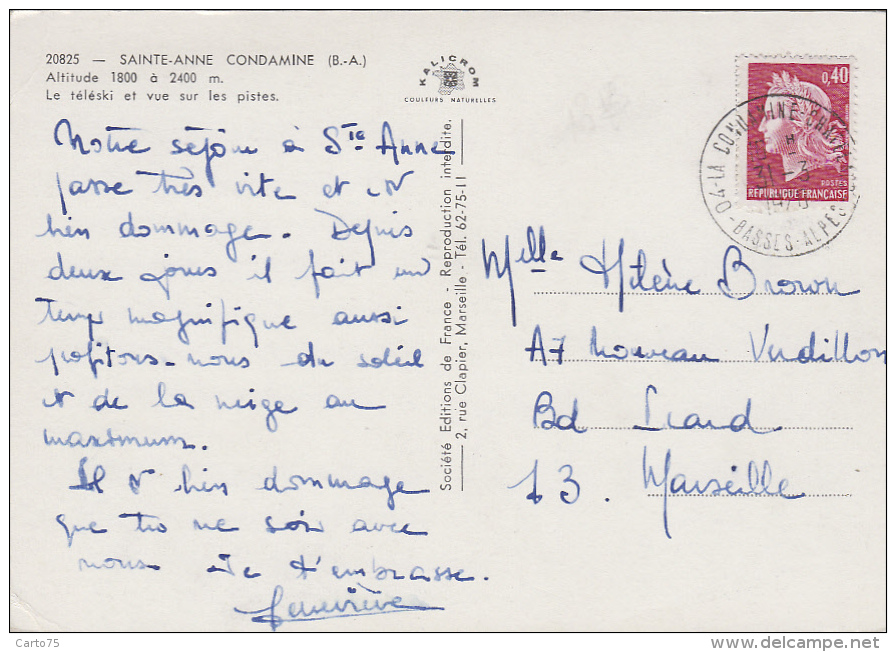 20825 — SAINTE-ANNE CONDAMINE (B.-A.)
Altitude 1800 à 2400 m.
Le téléski et vue sur les pistes.
KALICROM
COULEURS NATURELLES
Notre séjour à Ste Anne
passe très vite et c'est
bien dommage. Depuis
deux jours il fait un
temps magnifique aussi
profitons-nous du soleil
et de la neige au
maximum.
Il est bien dommage
que tu ne sois avec
nous. Je t'embrasse.
Geneviève
Société Editions de France - Reproduction interdite.
2, rue Clapier, Marseille - Tél. 62-75-11
0,40
POSTES
REPUBLIQUE FRANÇAISE
04-LA CONDAMINE
BASSES-ALPES
Melle Hélène Brown
A7 Nouveau Verdillon
Bd Icard
13. Marseille
Carto75
www.delcampe.net